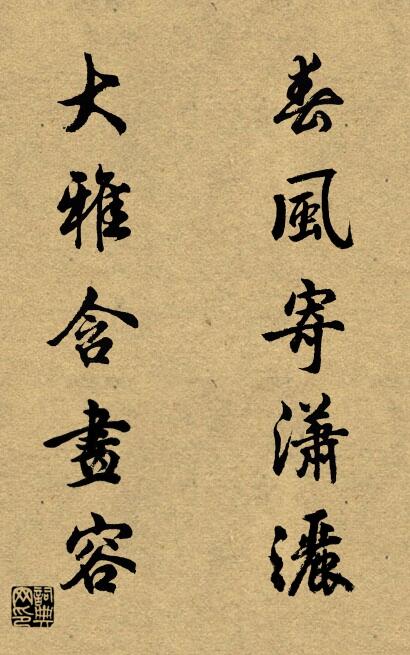 春風寄瀟灑
大雅含畫容
詞典网印